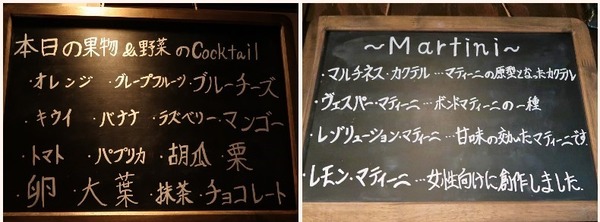 本日の果物&野菜のCocktail
・オレンジ ・グレープフルーツ・ブルーチーズ
・キウイ ・バナナ ・ラズベリー・マンゴー
・トマト ・パプリカ ・胡瓜 ・栗
・卵 ・大葉 ・抹茶・チョコレート
~Martini~
・マルチネス・カクテル…マティーニの原型となったカクテル
・ヴェスパー・マティーニ…ボンドマティーニの一種
・レゾリューション・マティーニ…甘味の効いたマティーニです.
・レモン・マティーニ…女性向けに創作しました.